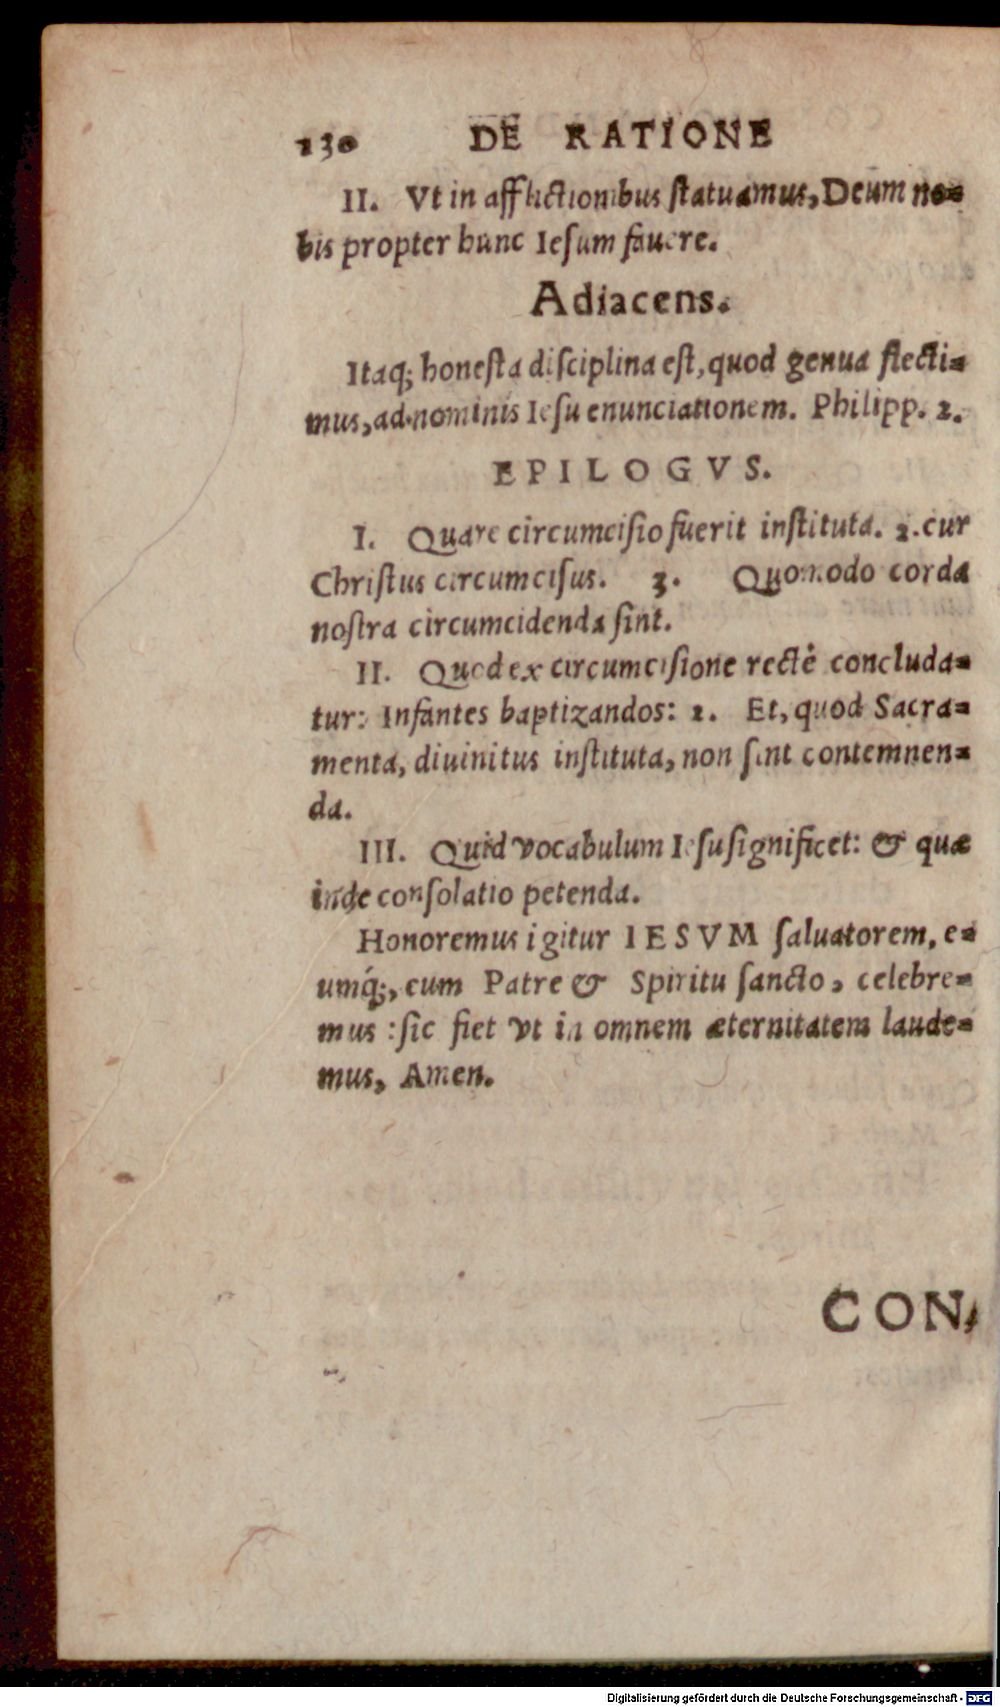 130 DE RATIONE
II. Vt in afflictionibus ſtatuamus, Deum no-
bis propter hunc Ieſum fauere.
Adiacens.
Itaq; honeſta diſciplina eſt, quod genua flecti-
mus, ad nominis Ieſu enunciationem. Philipp. 2.
EPILOGVS.
I. Quare circumciſio fuerit inſtituta. 2. cur
Chriſtus circumciſus. 3. Quomodo corda
noſtra circumcidenda ſint.
II. Quod ex circumciſione rectè concluda-
tur: Infantes baptizandos: 2. Et, quod Sacra-
menta, diuinitus inſtituta, non ſint contemnen-
da.
III. Quid vocabulum Ieſu ſignificet: & quæ
inde conſolatio petenda.
Honoremus igitur IESVM ſaluatorem, e-
umq́;, cum Patre & Spiritu ſancto, celebre-
mus: ſic fiet vt in omnem æternitatem laude-
mus, Amen.
CON-
Digitalisierung gefördert durch die Deutsche Forschungsgemeinschaft - DFG